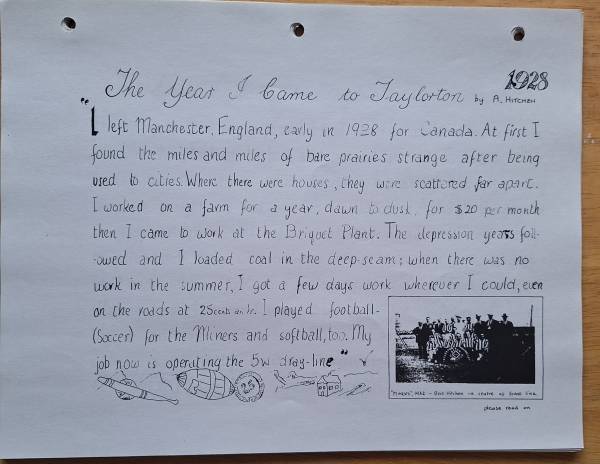 1928
The Year I Came to Taylorton by A. HITCHEN
"I left Manchester, England, early in 1928 for Canada. At first I
found the miles and miles of bare prairies strange after being
used to cities. Where there were houses, they were scattered far apart.
I worked on a farm for a year, dawn to dusk, for $20 per month
then I came to work at the Briquet Plant. The depression years foll-
-owed and I loaded coal in the deep-seam; when there was no
work in the summer, I got a few days work wherever I could, even
on the roads at 25cents an hr. I played football-
(Soccer) for the Miners and softball, too. My
job now is operating the 5w drag-line"
25
"MINERS", - Hitchen in centre of
please read on